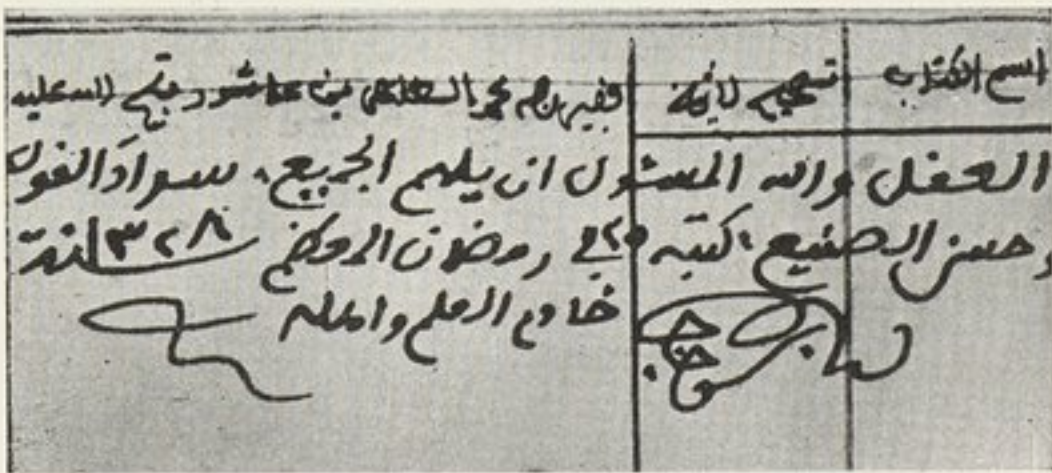 اسم الكتاب
تصحيح لائمة
فقير ربه محمد الطاهر بن عاشور فتح الله عليه
العقل والله المسئول ان يلهم الجميع، سداد القول
وحسن الصنيع، كتبه في ٢٥ رمضان المعظم ١٣٢٨ سنة
خادم العلم والملة